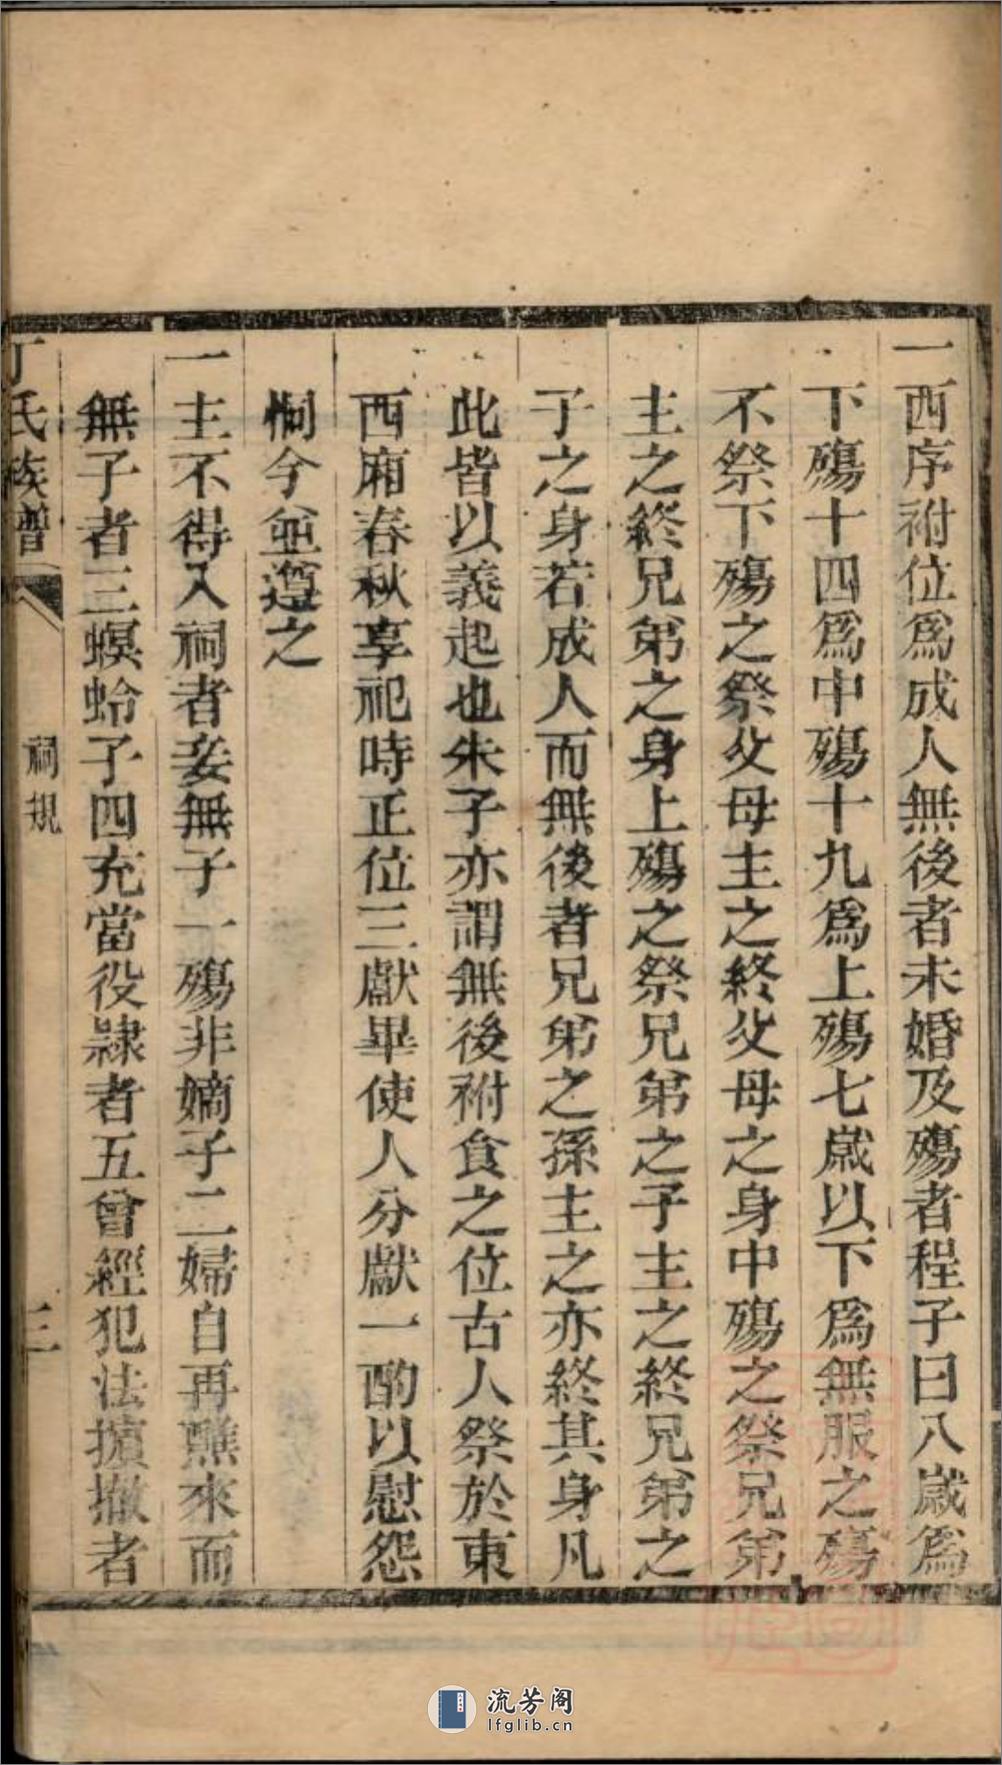 一西序祔位爲成人無後者未婚及殤者程子曰八歲爲
下殤十四爲中殤十九爲上殤七歲以下爲無服之殤
不祭下殤之祭父母主之終父母之身中殤之祭兄弟
主之終兄弟之身上殤之祭兄弟之子主之終兄弟之
子之身若成人而無後者兄弟之孫主之亦終其身凡
此皆以義起也朱子亦謂無後祔食之位古人祭於東
西廂春秋享祀時正位三獻畢使人分獻一酌以慰怨
恫今並遵之
一主不得入祠者妾無子一殤非嫡子二婦自再醮來而
無子者三螟蛉子四充當役隸者五曾經犯法擯撤者
丁氏族譜 祠規 三
流芳阁
lfglib.cn